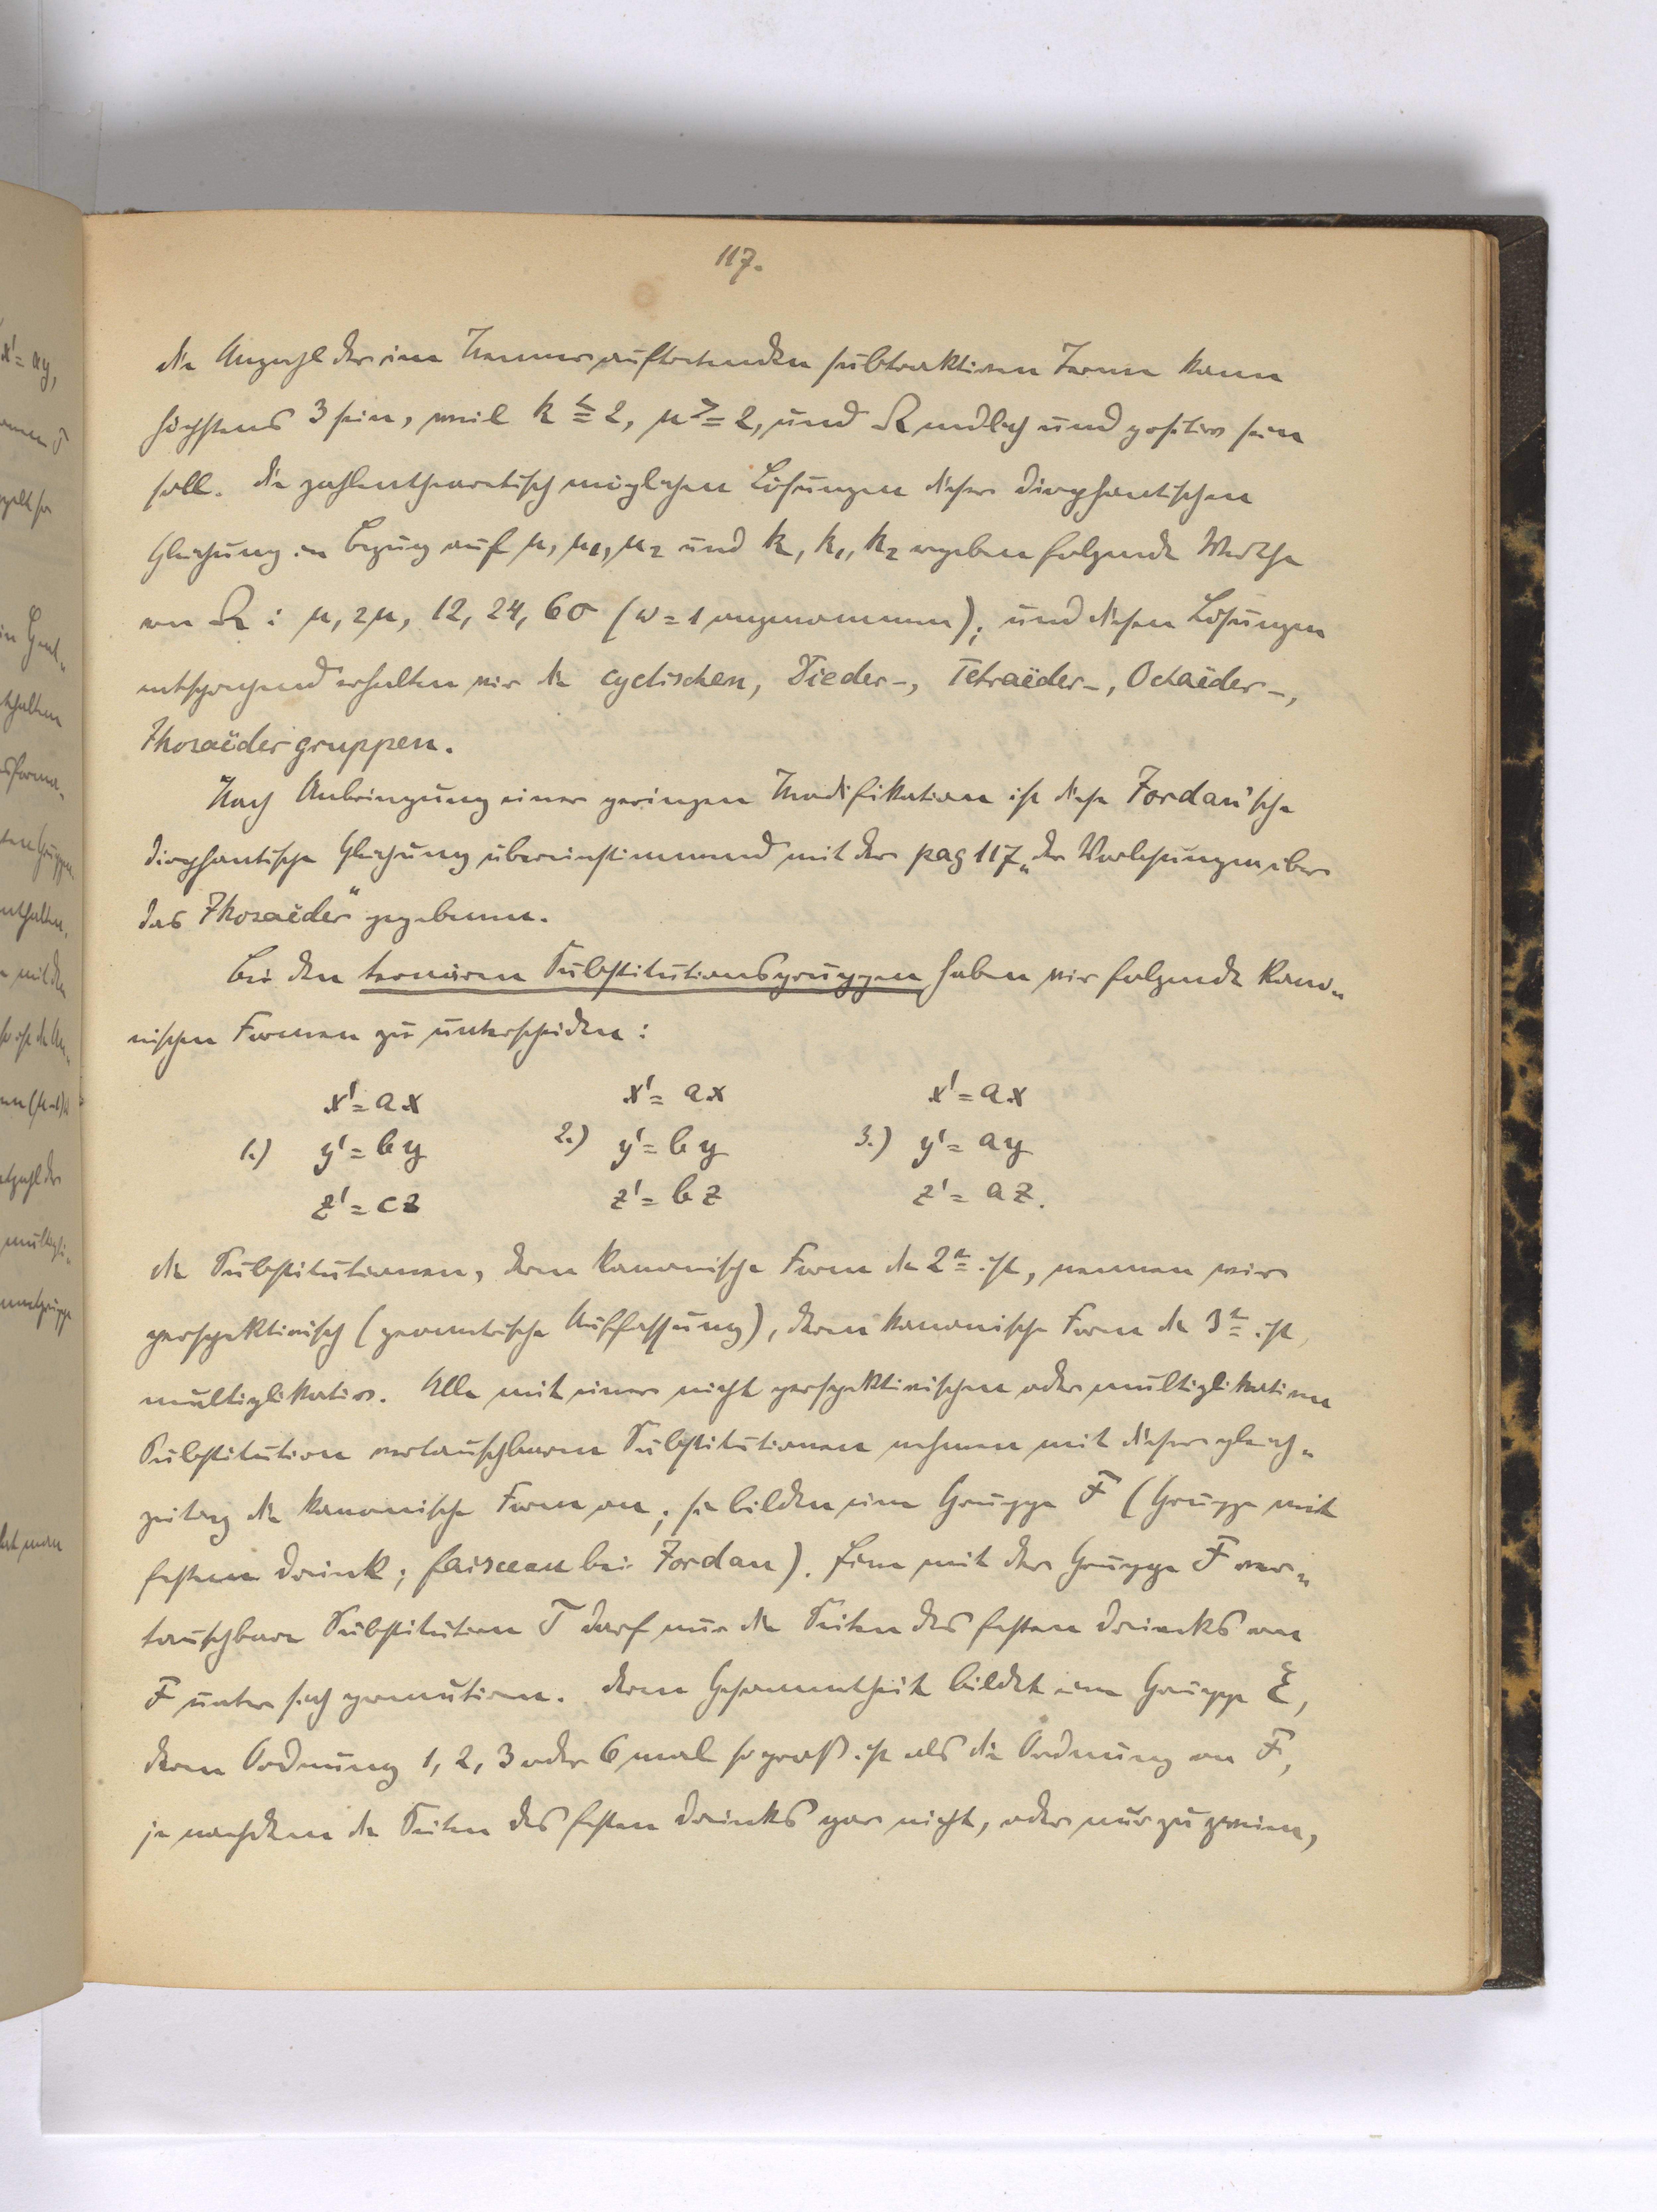 117.
die Anzahl der im Nenner auftretenden subtraktiven Terme kann
höchstens 3 sein, weil k ≦ 2, μ ≧ 2, und Ω endlich und positiv sein
soll. Die zahlentheoretisch möglichen Lösungen dieser diophantischen
Gleichung in Bezug auf μ, μ₁, μ₂ und k, k₁, k₂ ergeben folgende Werthe
von Ω : μ, 2μ, 12, 24, 60 (ω = 1 angenommen); und diesen Lösungen
entsprechend erhalten wir die cyclischen, Dieder-, Tetraëder-, Octaëder-,
Ikosaëdergruppen.
Nach Anbringung einer geringen Modifikation ist diese Jordan'sche
diophantische Gleichung übereinstimmend mit der pag 117 „der Vorlesungen über
das Ikosaëder“ gegebenen.
Bei den ternären Substitutionsgruppen haben wir folgende kano-
nischen Formen zu unterscheiden:
x' = ax x' = ax x' = ax
1.) y' = by 2.) y' = by 3.) y' = ay
z' = cz z' = bz z' = az.
Die Substitutionen, deren kanonische Form die 2te ist, nennen wir
perspektivisch (geometrische Auffassung), deren kanonische Form die 3te ist,
multiplikativ. Alle mit einer nicht perspektivischen oder multiplikativen
Substitution vertauschbaren Substitutionen nehmen mit dieser gleich-
zeitig die kanonische Form an; sie bilden eine Gruppe F (Gruppe mit
festem Dreieck; faisceau bei Jordan). Eine mit der Gruppe F ver-
tauschbare Substitution T darf nur die Seiten des festen Dreiecks von
F unter sich permutieren. Deren Gesammtheit bildet eine Gruppe ξ,
deren Ordnung 1, 2, 3 oder 6 mal so groß ist als die Ordnung von F,
je nachdem die Seiten des festen Dreiecks gar nicht, oder nur zu zweien,